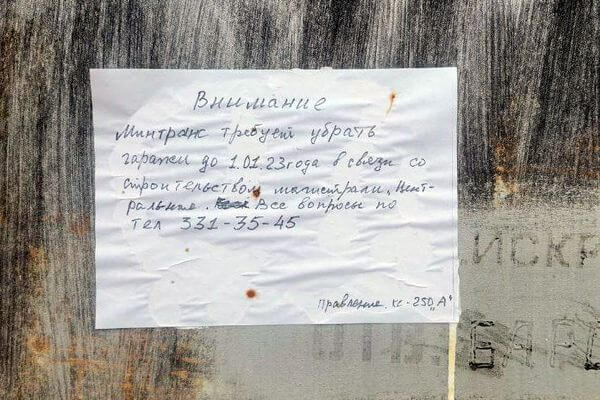 Внимание
Минтранс требует убрать
гаражи до 1.01.23года в связи со
строительством магистрали, Цент-
ральные. Все вопросы по
тел 331-35-45
Правление. кс-250 „А"
ИСКР